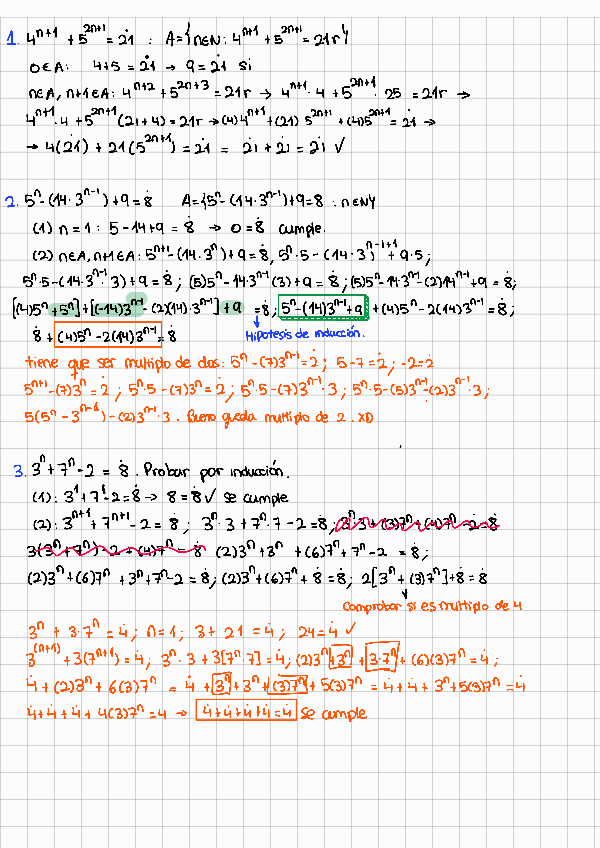 1. 4^{n+1} + 5^{2n+1} = 2̇1 : A={n∈N: 4^{n+1} + 5^{2n+1} = 21r}
0∈A: 4+5 = 2̇1 → 9 = 2̇1 Si
n∈A, n+1∈A: 4^{n+2} + 5^{2n+3} = 21r → 4^{n+1}·4 + 5^{2n+1}·25 = 21r →
4^{n+1}·4 + 5^{2n+1}(21+4) = 21r → (4)4^{n+1} + (21)5^{2n+1} + (4)5^{2n+1} = 2̇1 →
→ 4(2̇1) + 21(5^{2n+1}) = 2̇1 = 2̇1 + 2̇1 = 2̇1 ✓
2. 5^n - (14·3^{n-1}) + 9 = 8̇ A={5^n - (14·3^{n-1}) + 9 = 8 : n∈N}
(1) n=1: 5-14+9 = 8̇ → 0 = 8̇ cumple.
(2) n∈A, n+1∈A: 5^{n+1} - (14·3^n) + 9 = 8̇, 5^n·5 - (14·3)^{n-1+1} + 9·5;
5^n·5 - (14·3^{n-1}·3) + 9 = 8̇; (5)5^n - 14·3^{n-1}(3) + 9 = 8̇; (5)5^n - 14·3^{n-1} - (2)14^{n-1} + 9 = 8̇;
[(4)5^n + 5^n] + [(-14)3^{n-1} - (2)(14)·3^{n-1}] + 9 = 8̇; 5^n - (14)3^{n-1} + 9 + (4)5^n - 2(14)3^{n-1} = 8̇;
8̇ + (4)5^n - 2(14)3^{n-1} = 8̇ Hipotesis de inducción.
tiene que ser multiplo de dos: 5^n - (7)3^{n-1} = 2̇; 5-7 = 2̇; -2 = 2̇
5^{n+1} - (7)3^n = 2̇; 5^n·5 - (7)3^n = 2̇; 5^n·5 - (7)3^{n-1}·3; 5^n·5 - (5)3^{n-1} - (2)3^{n-1}·3;
5(5^n - 3^{n-1}) - (2)3^{n-1}·3. Bueno queda multiplo de 2. XD
3. 3^n + 7^n - 2 = 8̇. Probar por inducción.
(1): 3^1 + 7^1 - 2 = 8̇ → 8 = 8̇ ✓ se cumple
(2): 3^{n+1} + 7^{n+1} - 2 = 8̇; 3^n·3 + 7^n·7 - 2 = 8̇; 3^n·3 + (3)7^n + (4)7^n - 2 = 8̇
3(3^n + 7^n) - 2 + (4)7^n = 8̇ (2)3^n + 3^n + (6)7^n + 7^n - 2 = 8̇;
(2)3^n + (6)7^n + 3^n + 7^n - 2 = 8̇; (2)3^n + (6)7^n + 8̇ = 8̇; 2[3^n + (3)7^n] + 8̇ = 8̇
Comprobar si es multiplo de 4
3^n + 3·7^n = 4̇; n=1; 3 + 21 = 4̇; 24 = 4̇ ✓
3^{(n+1)} + 3(7^{n+1}) = 4̇; 3^n·3 + 3[7^n·7] = 4̇; (2)3^n + 3^n + 3·7^n + (6)(3)7^n = 4̇;
4̇ + (2)3^n + 6(3)7^n = 4̇ + 3^n + 3^n + (3)7^n + 5(3)7^n = 4̇ + 4̇ + 3^n + 5(3)7^n = 4̇
4̇ + 4̇ + 4̇ + 4(3)7^n = 4̇ → 4̇ + 4̇ + 4̇ + 4̇ = 4̇ se cumple